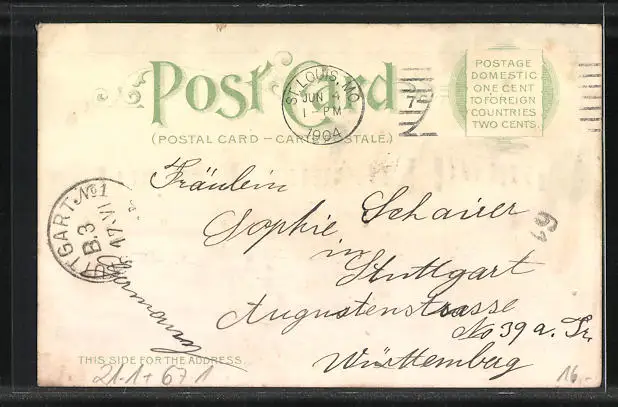 Post Card
(POSTAL CARD — CARTE POSTALE.)
ST. LOUIS, MO.
JUN 4
1 - PM
1904
7
POSTAGE
DOMESTIC
ONE CENT
TO FOREIGN
COUNTRIES
TWO CENTS.
Fräulein
Sophie Schairer
in
Stuttgart
Augustenstrasse
No 39 a. Tr.
Württemberg
TTGART. No 1
B.3
17 VI
THIS SIDE FOR THE ADDRESS.
21.1 + 67.1
16.-